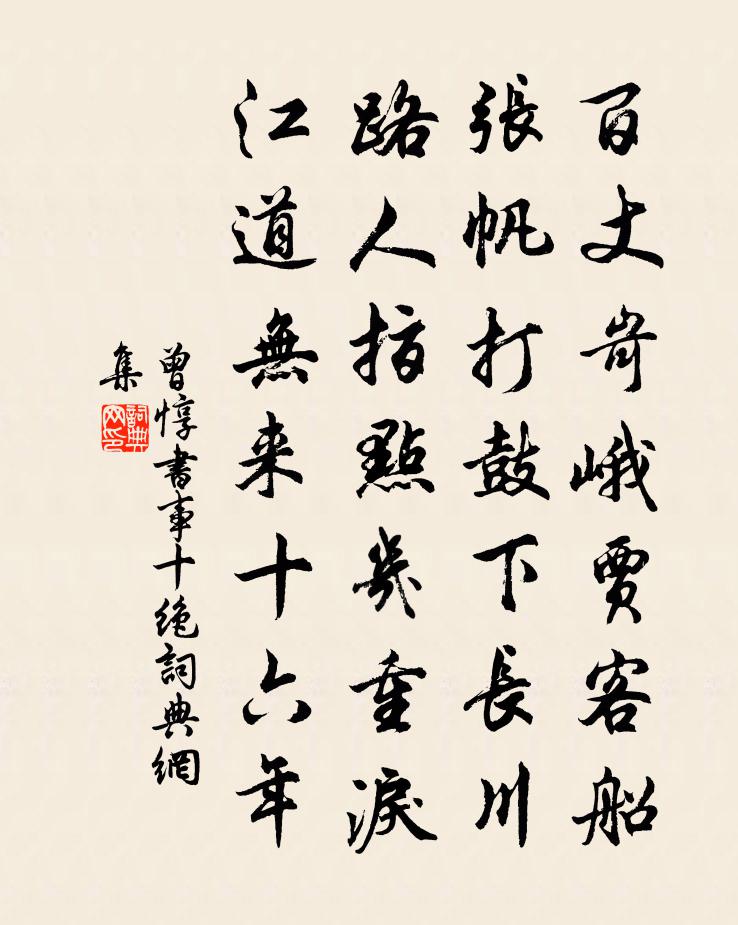 百丈崎峨賈客船
張帆打鼓下長川
路人指點幾重淚
江道無来十六年
曾惇書事十絶詞典網
集
詞典
网印